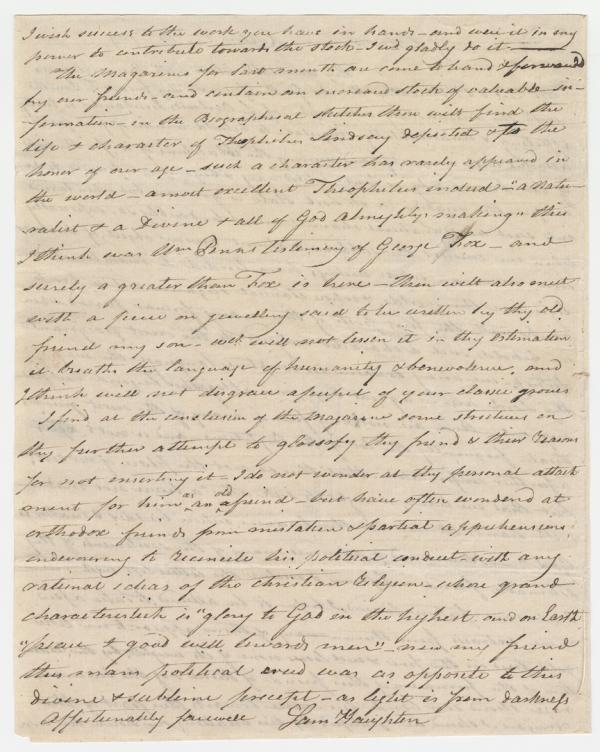 I wish success to the work you have in hands – and were it in my
power to contribute towards the stock – I wd gladly do it –
The Magazines for last month are come to hand & forwarded
by our friends – and contain an increased stock of valuable in-
formation – in the Biographical sketches thou wilt find the
life & character of Theophilus Lindsay depicted & to the
honor of our age – such a character has rarely appeared in
the world – a most excellent Theophilus indeed – "a natu-
ralist & a Divine & all of God Almightys making" this
I think was Wm Penns testimony of George Fox – and
surely a greater than Fox is here – thou wilt also meet
with a piece on said to be written by thy old
friend my son – wch will not lessen it in thy estimation
it breaths the language of humanity & benevolence, and
I think will not disgrace a pupil of your classic groves
I find at the conclusion of the Magazine some strictures on
thy further attempt to glossify thy friend & their Reasons
for not inserting it – I do not wonder at thy personal attach
ment for him as an old friend – but have often wondered at
orthodox friends from mistaken & partial apprehensions
endeavoring to reconcile his political conduct with any
rational ideas of the christian Religion – whose grand
characteristick is "glory to God in the highest and on Earth
"peace & good will towards men" – now my friend
this mans political creed was as opposite to this
divine & sublime precept – as light is from darkness
Affectionately farewell Sam Haughton